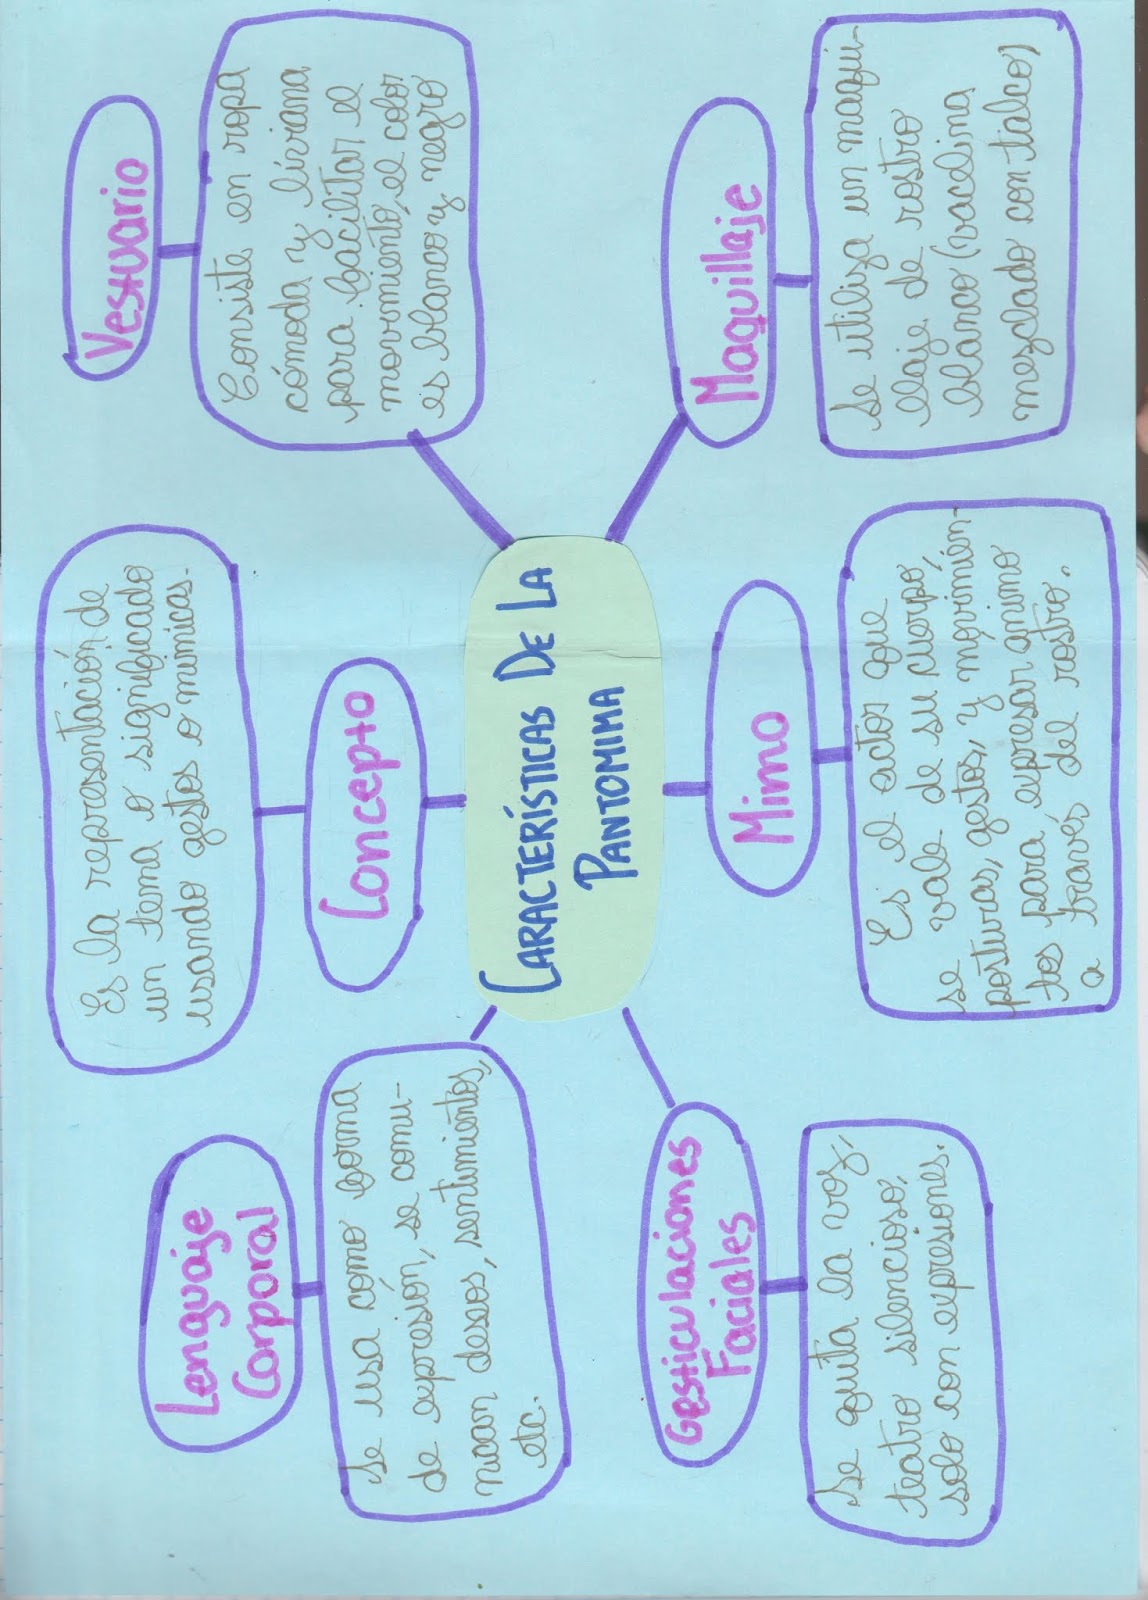 CARACTERÍSTICAS DE LA
PANTOMIMA
Lenguaje
Corporal
Se usa como forma
de expresión, se comu-
nican deseos, sentimientos,
etc.
Concepto
Es la representación de
un tema o significado
usando gestos o mimicas.
Vestuario
Consiste en ropa
cómoda y liviana
para facilitar el
movimiento, el color
es blanco y negro
Gesticulaciones
Faciales
Se quita la voz,
teatro silencioso,
solo con expresiones.
Mimo
Es el actor que
se vale de su cuerpo,
posturas, gestos, y movimien-
tos para expresar animo
a través del rostro.
Maquillaje
Se utiliza un maqui-
llaje de rostro
blanco (vacelina
mezclado con talco)